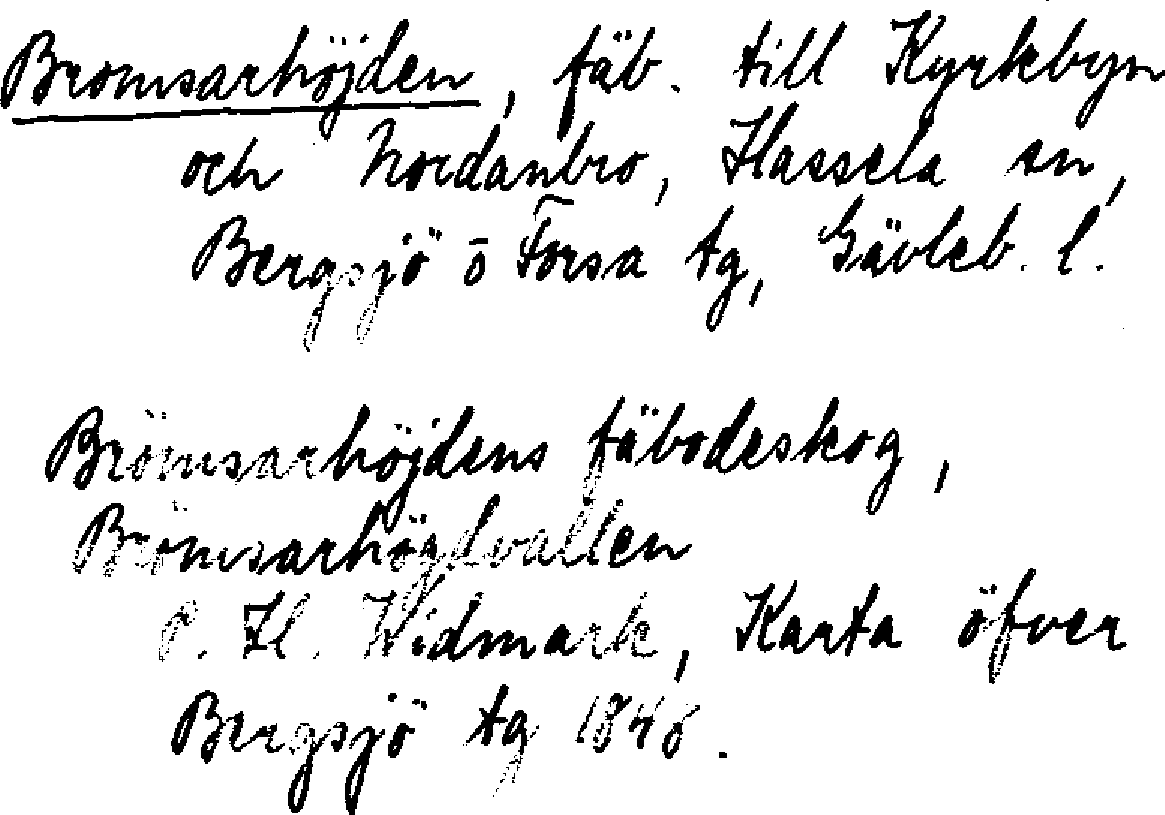 Bromsarhöjden, fäb. till Kyrkbyn
och Nordanbro, Hassela sn,
Bergsjö ō Forsa tg, Gävleb. l.
Brömsarhöjdens fäbodeskog,
Brömsarhögdvallen
P. H. Widmark, Karta öfver
Bergsjö tg 1846.